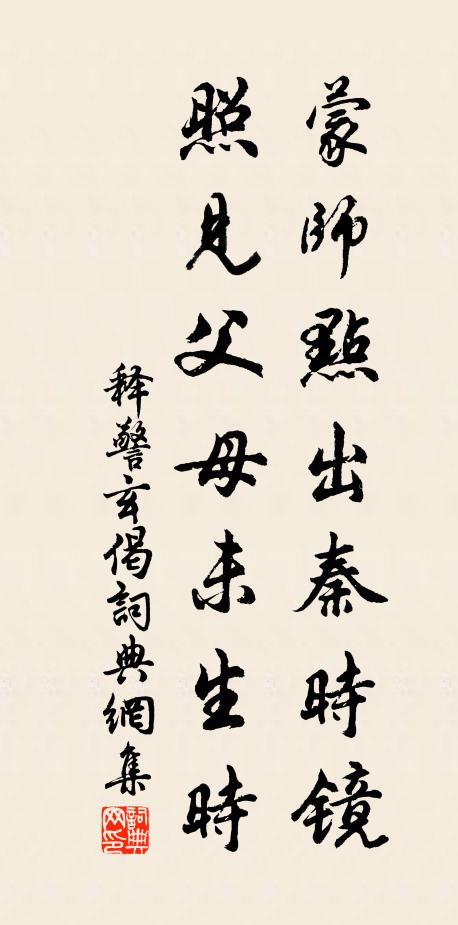 蒙師點出秦時鏡
照見父母未生時
释警玄偈詞典網集
詞典網印